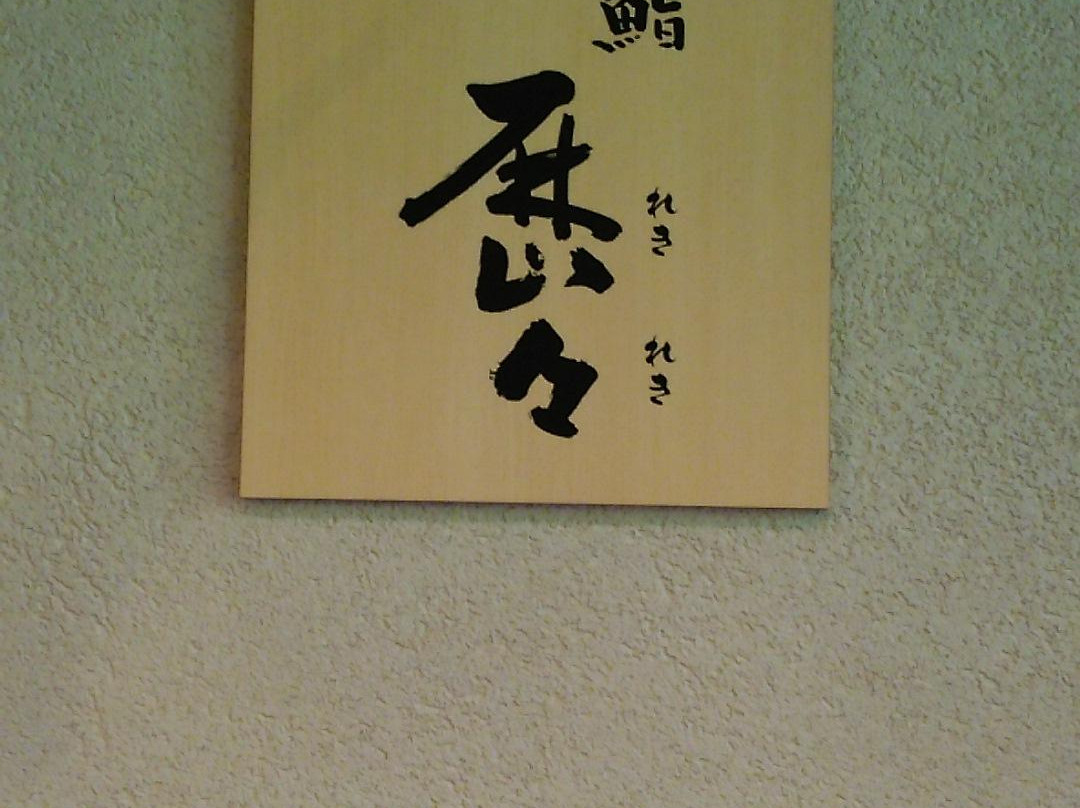 鮨
歴々
れき
れき